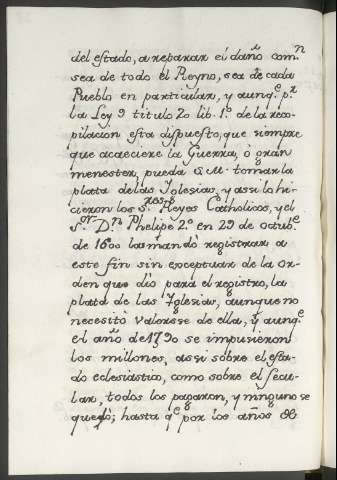 del estado, a reparar el daño comn
sea de todo el Reyno, sea de cada
Pueblo en particular, y aunq.e p.r
la Ley 9 titulo 2o lib. 1.o de la reco-
pilacion esta dispuesto, que siempre
que acaeciere la Guerra, ò gran
menester, pueda S.M. tomar la
plata de las Iglesias, y assi lo hi-
cieron los S.res Reyes Catholicos, y el
S.or D.n Phelipe 2.o en 29 de octub.e
de 1600 la mandò registrar a
este fin sin exceptuar de la or-
den que dio para el registro, la
plata de las Iglesias, aunque no
necesitò valerse de ella, y aunq.e
el año de 1790 se impusieron
los millones, assi sobre el esta-
do eclesiastico, como sobre el secu-
lar, todos los pagaron, y ninguno se
quexò; hasta q.e por los años de